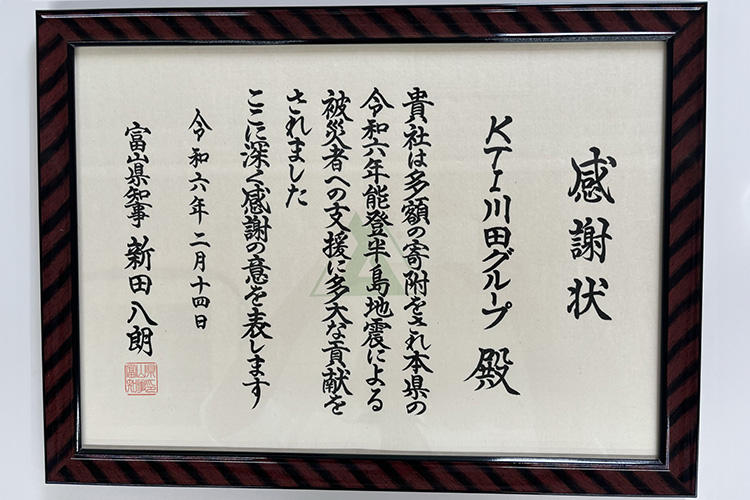 感謝状
KTI川田グループ 殿
貴社は多額の寄附をされ本県の
令和六年能登半島地震による
被災者への支援に多大な貢献を
されました
ここに深く感謝の意を表します
令和六年二月十四日
富山県知事 新田八朗